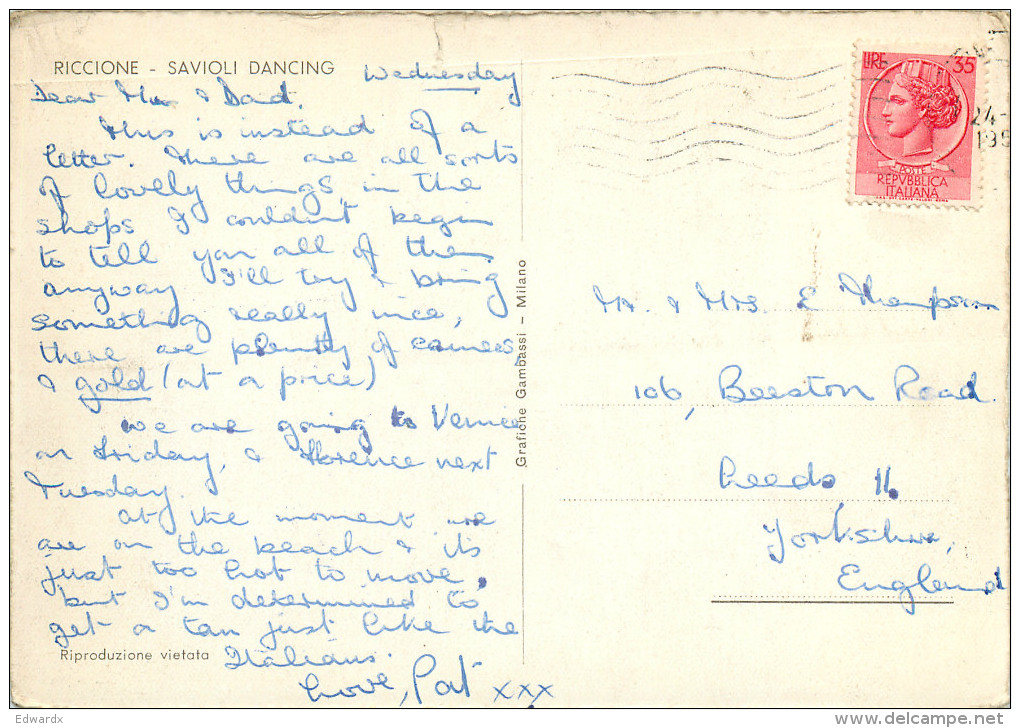 RICCIONE - SAVIOLI DANCING
Wednesday
Dear Mum & Dad.
This is instead of a
letter. There are all sorts
of lovely things, in the
shops I couldn't begin
to tell you all of them
anyway I'll try & bring
something really nice,
there are plenty of cameos,
& gold (at a price)
We are going to Venice
on Friday, & Florence next
Tuesday.
At the moment we
are on the beach & it's
just too hot to move,
but I'm determined to
get a tan just like the
Italians.
Love, Pat xxx
Riproduzione vietata
Grafiche Gambassi - Milano
LIRE 35
POSTE
REPVBBLICA
ITALIANA
24-
195
Mr. & Mrs. E Thompson
106, Beeston Road.
Leeds 11
Yorkshire,
England
Edwardx
www.delcampe.net